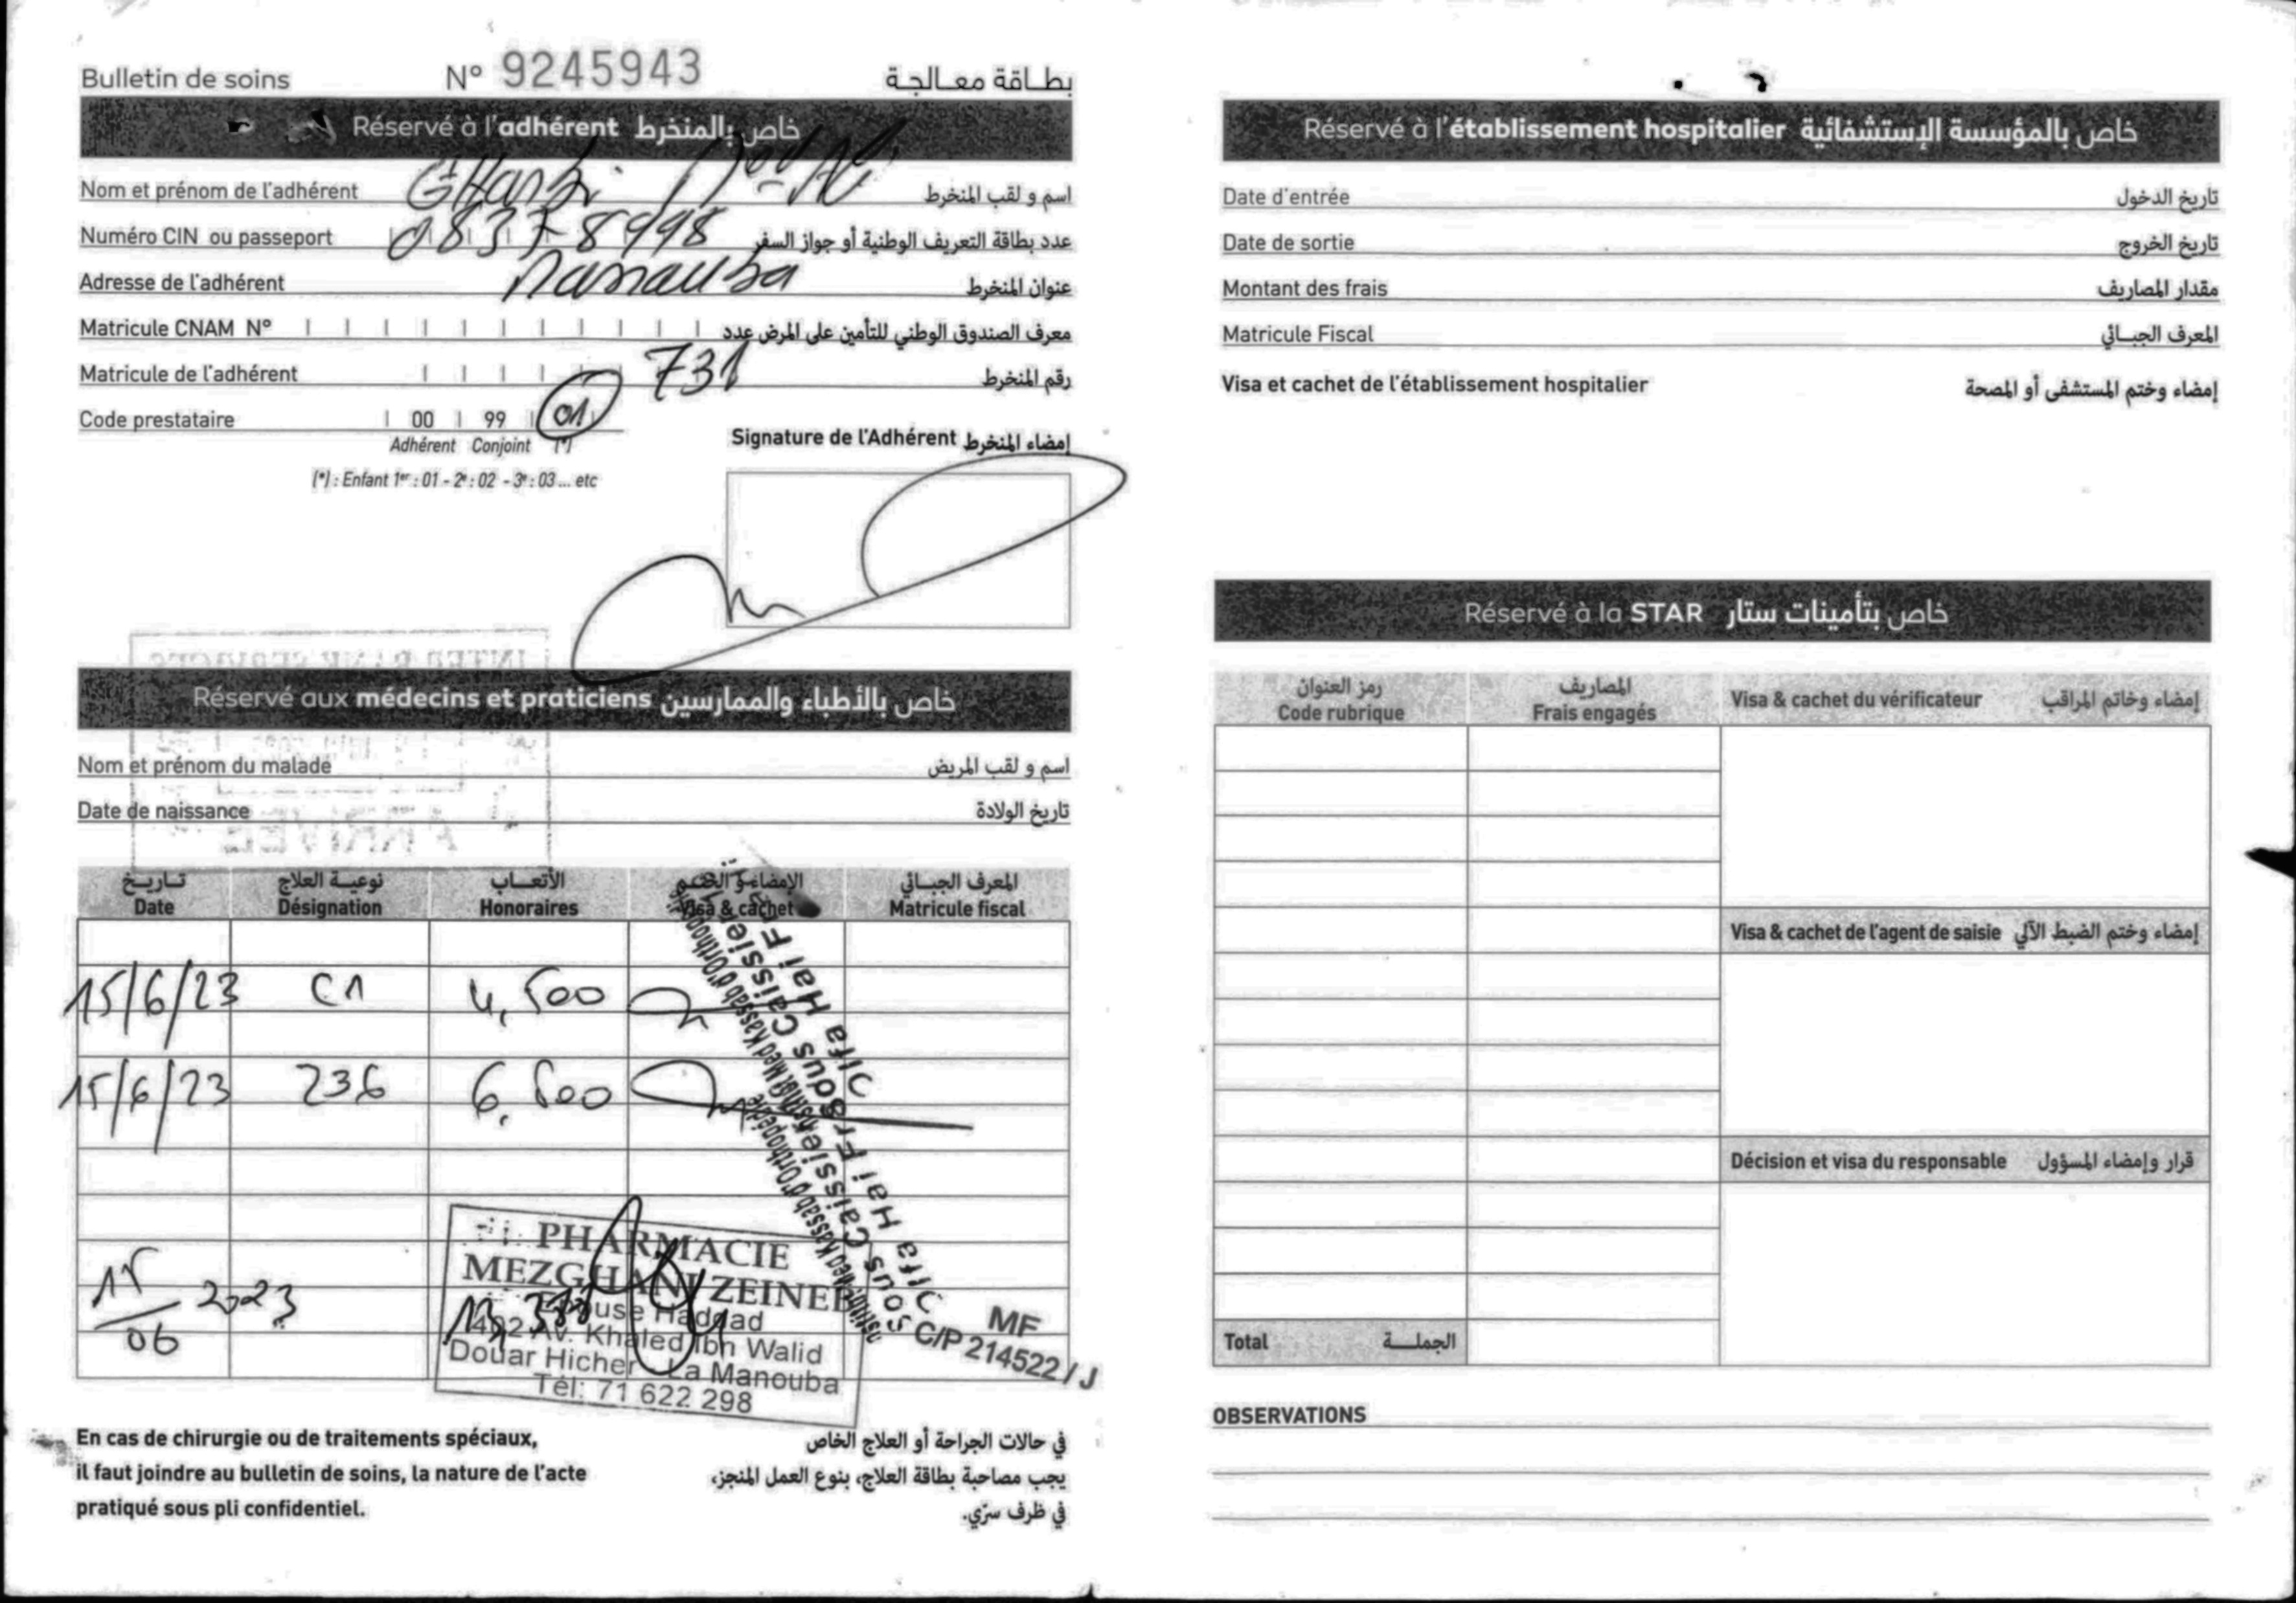 Bulletin de soins N° 9245943 بطاقة معالجة
Réservé à l'adhérent خاص بالمنخرط
Nom et prénom de l'adhérent Gharbi اسم و لقب المنخرط
Numéro CIN ou passeport 08378998 عدد بطاقة التعريف الوطنية أو جواز السفر
Adresse de l'adhérent manouba عنوان المنخرط
Matricule CNAM N° معرف الصندوق الوطني للتأمين على المرض عدد
Matricule de l'adhérent 731 رقم المنخرط
Code prestataire 00 99 01
Adhérent Conjoint (*)
(*) : Enfant 1er : 01 - 2e : 02 - 3e : 03 ... etc
Signature de l'Adhérent إمضاء المنخرط
INTER BANK SERVICES
Réservé aux médecins et praticiens خاص بالأطباء والممارسين
Nom et prénom du malade اسم و لقب المريض
Date de naissance تاريخ الولادة
ARRIVEE
تاريخ نوعية العلاج الأتعاب الإمضاء و الختم المعرف الجبائي
Date Désignation Honoraires Visa & cachet Matricule fiscal
15/6/23 C1 4,500
15/6/23 Z36 6,500
Institut Med Kassab d'Orthopédie
Sous Caissier
Jlifa Hai Frag
Institut Med Kassab d'Orthopédie
Sous Caissier
Jlifa Hai Frag
15/06 2023
PHARMACIE
MEZGHANI ZEINEB
Epouse Haddad
Av. Khaled Ibn Walid
Douar Hicher La Manouba
Tél: 71 622 298
MF
C/P 214522 / J
En cas de chirurgie ou de traitements spéciaux,
il faut joindre au bulletin de soins, la nature de l'acte
pratiqué sous pli confidentiel.
في حالات الجراحة أو العلاج الخاص
يجب مصاحبة بطاقة العلاج، بنوع العمل المنجز،
في ظرف سرّي.
Réservé à l'établissement hospitalier خاص بالمؤسسة الإستشفائية
Date d'entrée تاريخ الدخول
Date de sortie تاريخ الخروج
Montant des frais مقدار المصاريف
Matricule Fiscal المعرف الجبائي
Visa et cachet de l'établissement hospitalier إمضاء وختم المستشفى أو المصحة
Réservé à la STAR خاص بتأمينات ستار
رمز العنوان المصاريف
Code rubrique Frais engagés Visa & cachet du vérificateur إمضاء وخاتم المراقب
Visa & cachet de l'agent de saisie إمضاء وختم الضبط الآلي
Décision et visa du responsable قرار وإمضاء المسؤول
Total الجملة
OBSERVATIONS